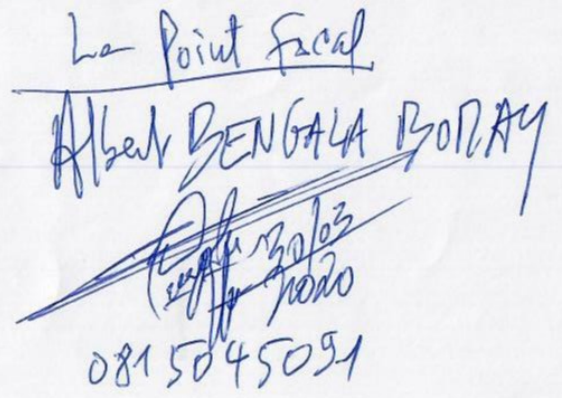 Le Point Focal
Albert BENGALA BOMAY
30/03
2020
0815045091